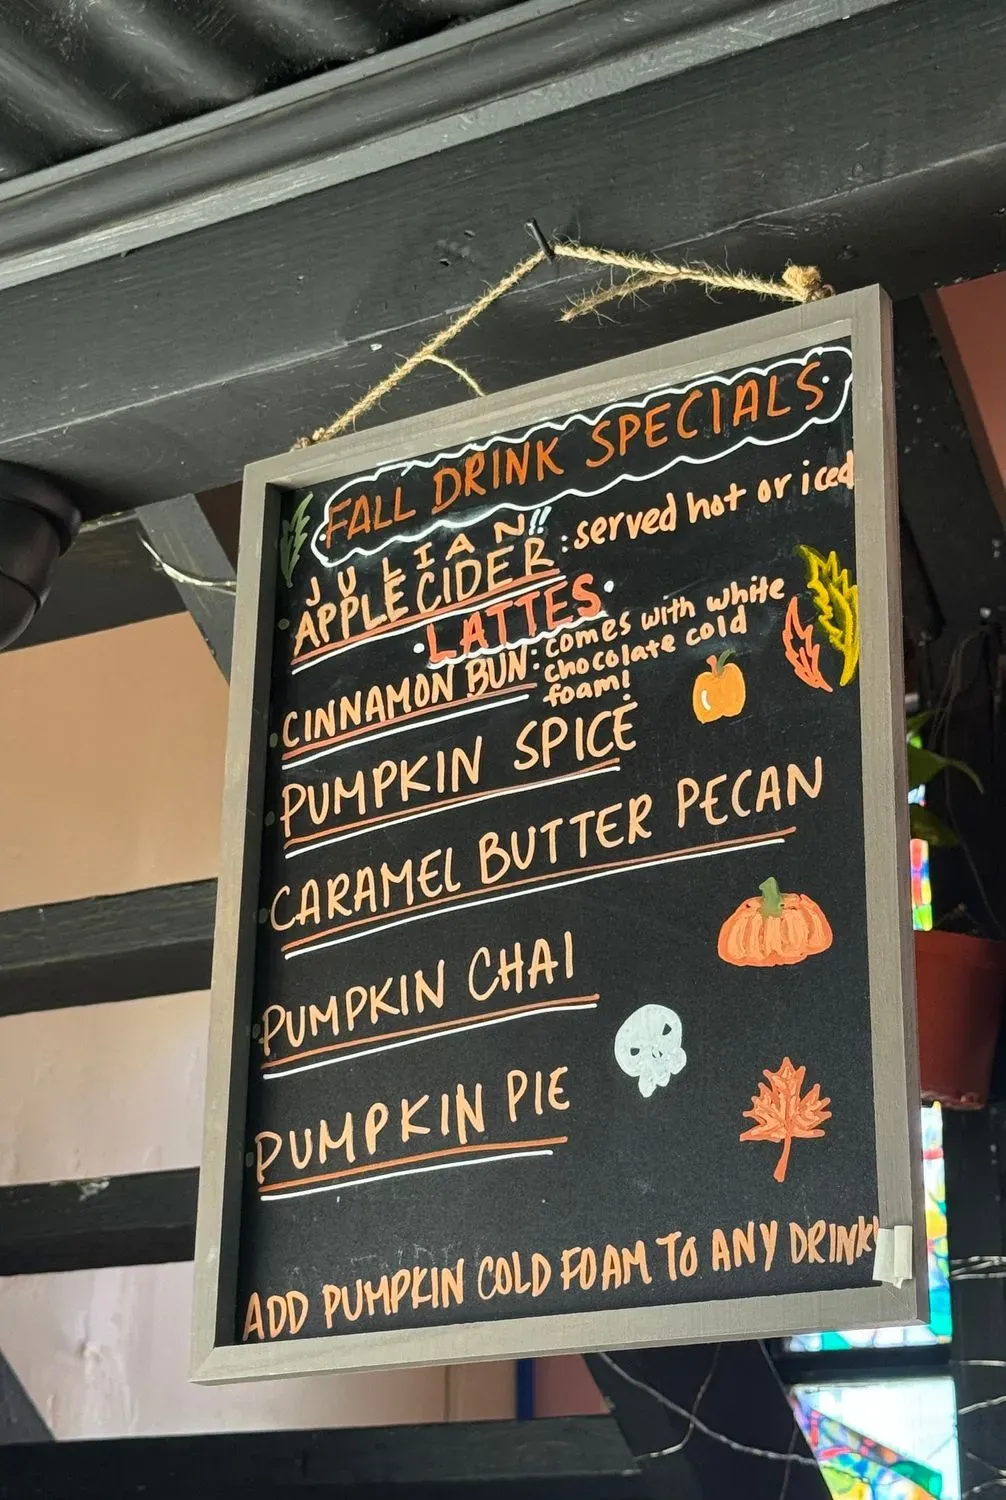 FALL DRINK SPECIALS
JULIAN!!
APPLE CIDER: served hot or iced
LATTES
CINNAMON BUN: comes with white
chocolate cold
foam!
PUMPKIN SPICE
CARAMEL BUTTER PECAN
PUMPKIN CHAI
PUMPKIN PIE
ADD PUMPKIN COLD FOAM TO ANY DRINK!